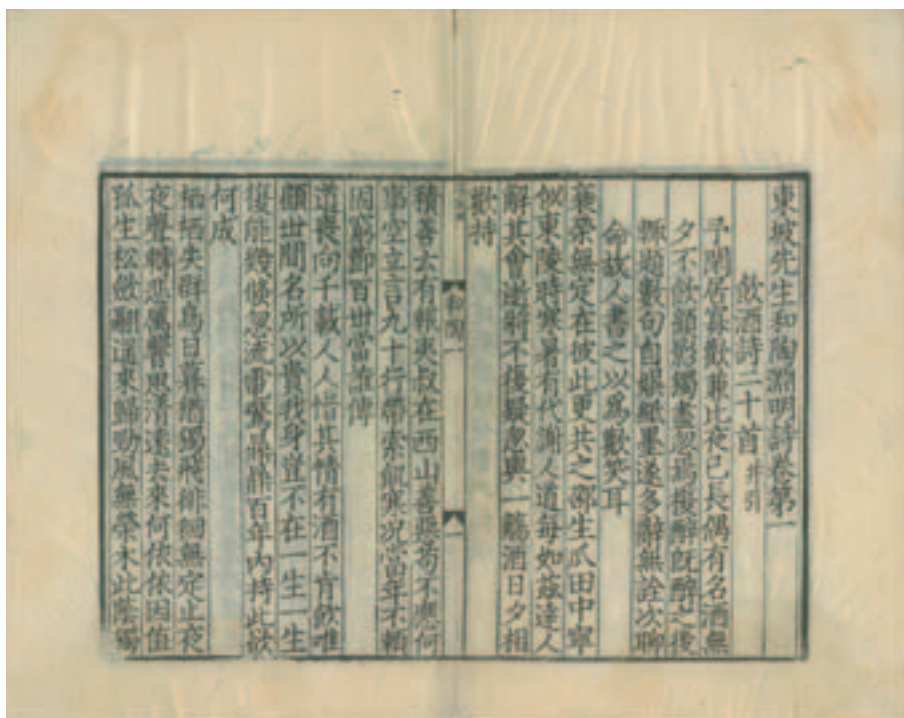 東坡先生和陶淵明詩卷第一
飲酒詩二十首并引
予閒居寡歡兼比夜已長偶有名酒無
夕不飲顧影獨盡忽焉復醉旣醉之後
輒題數句自娛紙墨遂多辭無詮次聊
命故人書之以爲歡笑耳
衰榮無定在彼此更共之邵生瓜田中寧
似東陵時寒暑有代謝人道每如茲達人
解其會逝將不復疑忽與一觴酒日夕相
歡持
積善云有報夷叔在西山善惡苟不應何
事空立言九十行帶索飢寒況當年不賴
固窮節百世當誰傳
道喪向千載人人惜其情有酒不肯飲唯
顧世間名所以貴我身豈不在一生一生
復能幾倏忽流電驚鼎鼎百年內持此欲
何成
栖栖失群鳥日暮猶獨飛徘徊無定止夜
夜聲轉悲厲響思清遠去來何依依因值
孤生松斂翮遥來歸勁風無榮木此蔭獨